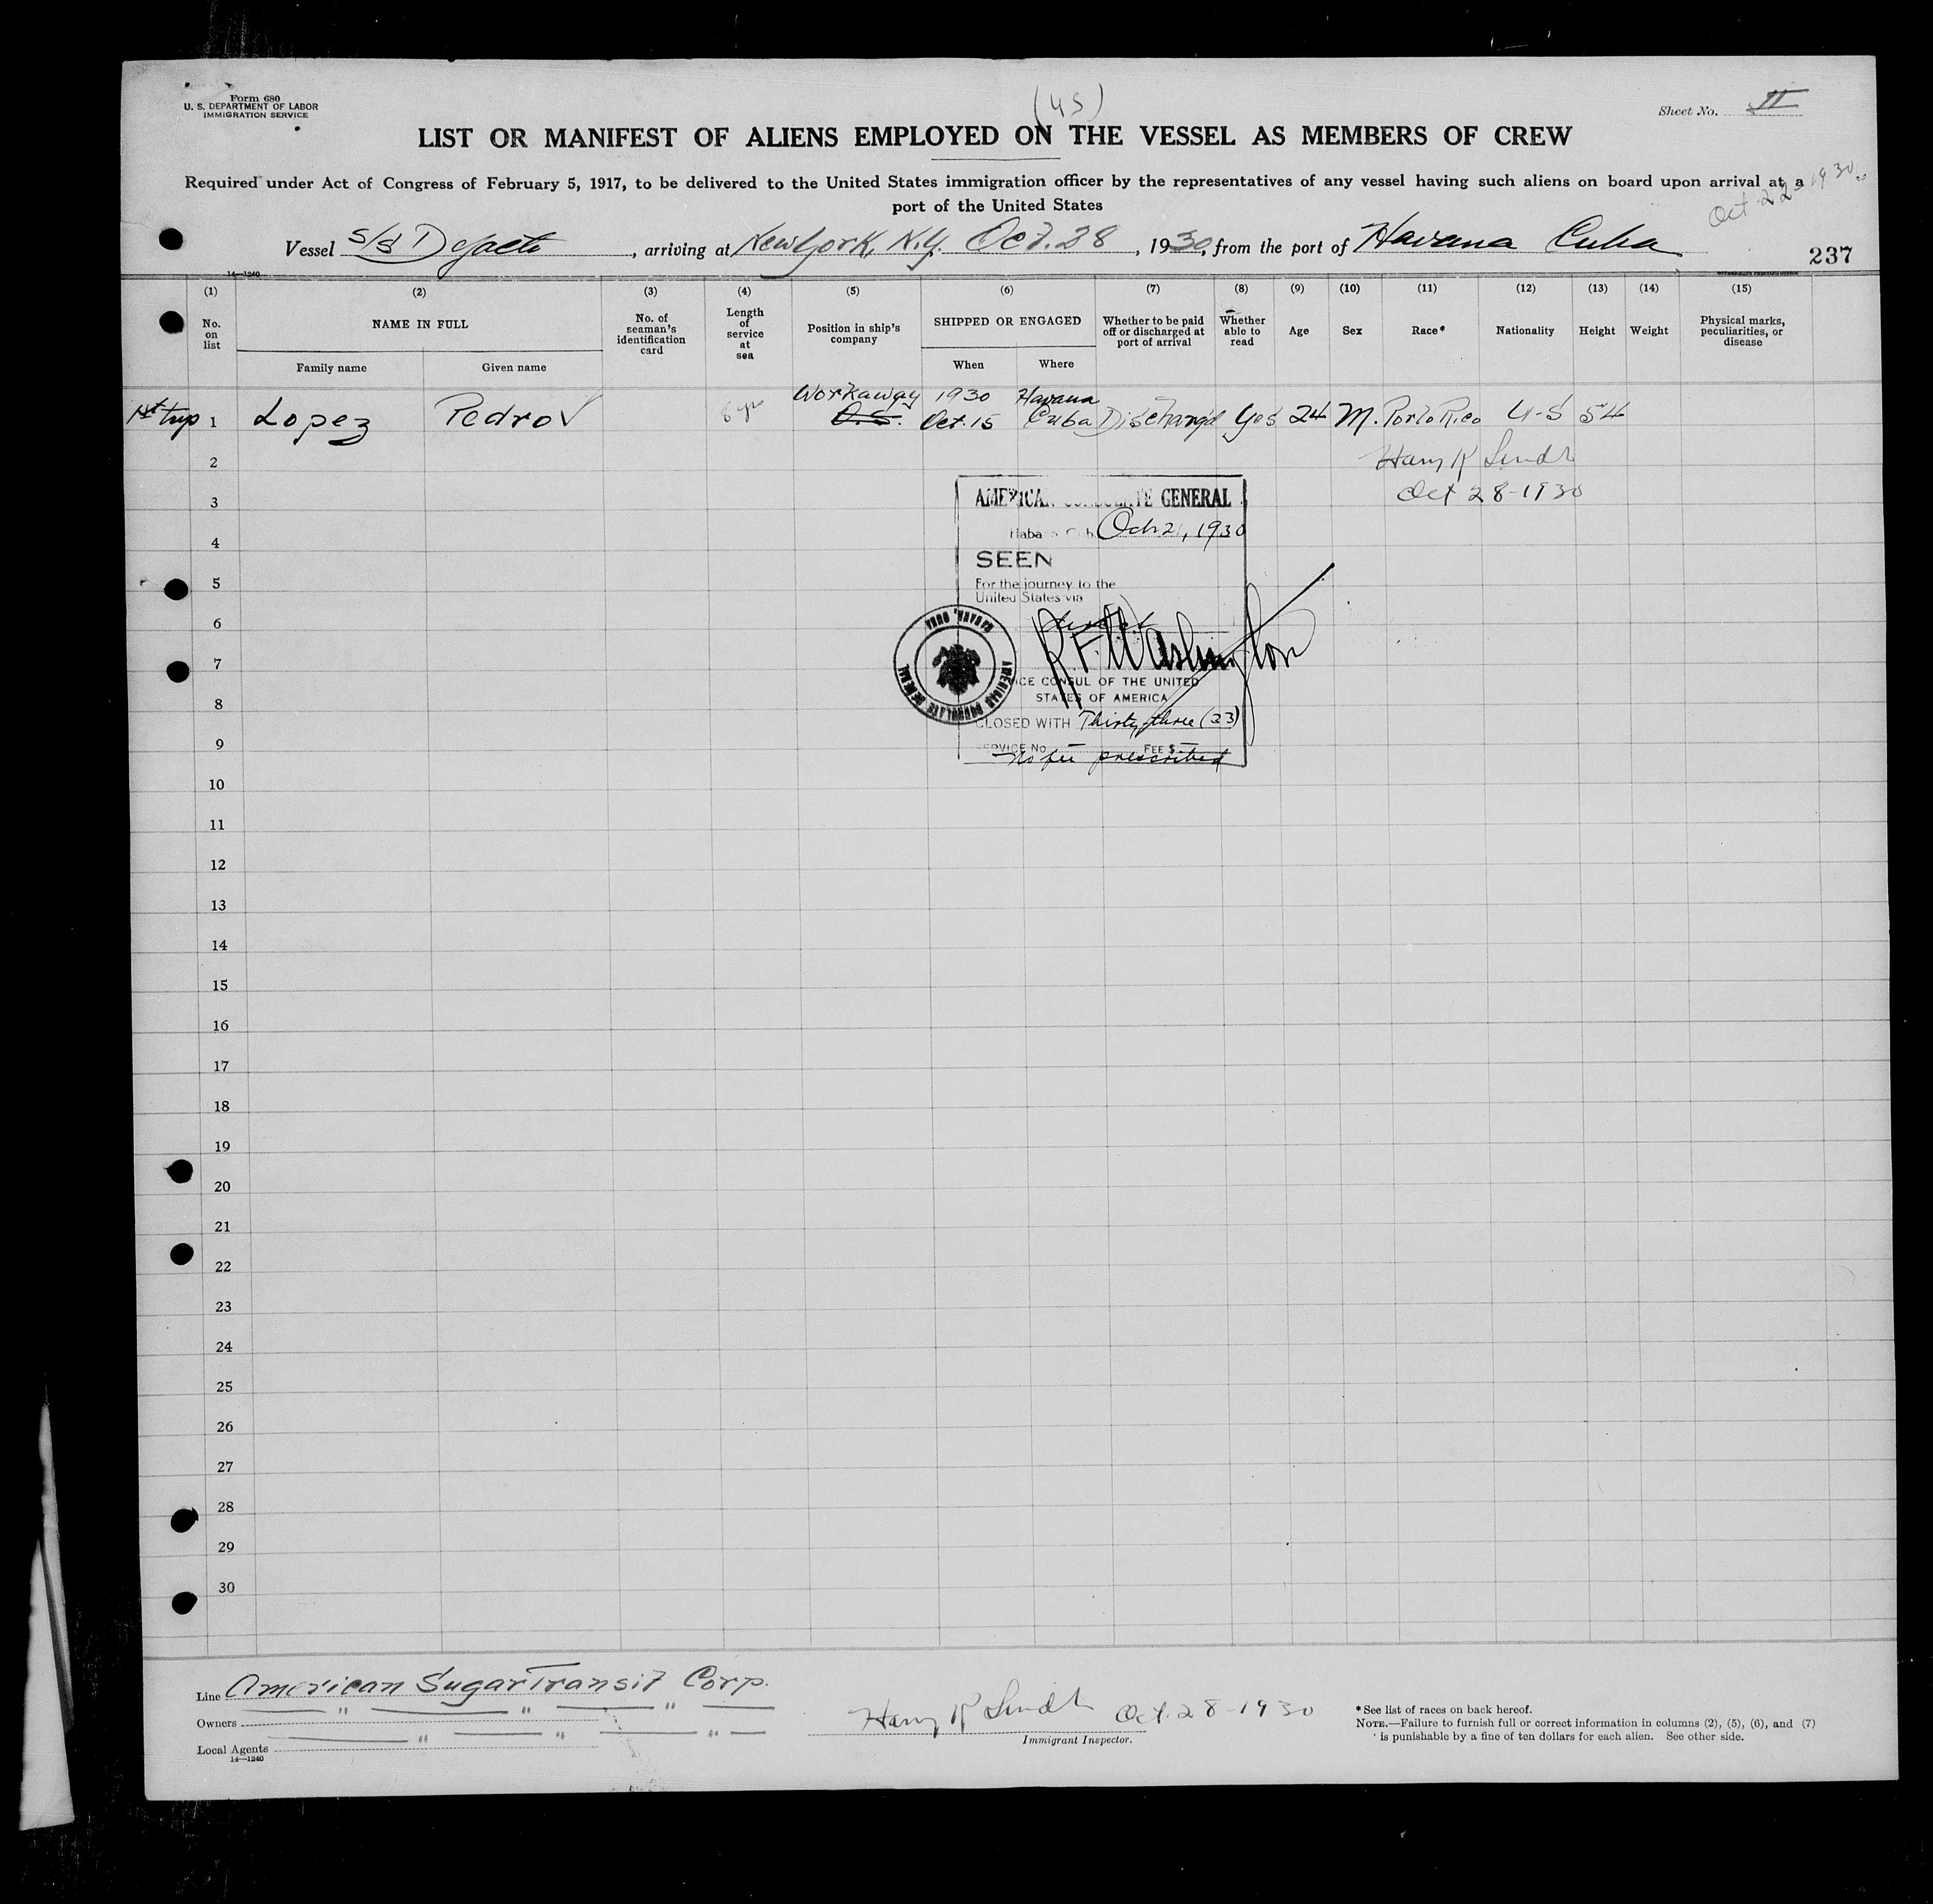 Form 680
U. S. DEPARTMENT OF LABOR
IMMIGRATION SERVICE
(US)
Sheet No. II
LIST OR MANIFEST OF ALIENS EMPLOYED ON THE VESSEL AS MEMBERS OF CREW
Required under Act of Congress of February 5, 1917, to be delivered to the United States immigration officer by the representatives of any vessel having such aliens on board upon arrival at a
port of the United States
Oct 22 1930
Vessel S/S , arriving at New York, N.Y. Oct. 28, 1930, from the port of Havana Cuba
237
14—1240
(1) (2) (3) (4) (5) (6) (7) (8) (9) (10) (11) (12) (13) (14) (15)
No. on list NAME IN FULL Family name Given name No. of seaman's identification card Length of service at sea Position in ship's company SHIPPED OR ENGAGED When Where Whether to be paid off or discharged at port of arrival Whether able to read Age Sex Race* Nationality Height Weight Physical marks, peculiarities, or disease
Workaway 1930 Havana
1st trip 1 Lopez Pedro √ 6 yrs O.S. Oct. 15 Cuba Discharged Yes 24 M. Porto Rico U-S 54
2 Harry K
3 Oct 28-1930
AMERICAN CONSULATE GENERAL
4
Oct 21, 1930
SEEN
5
For the journey to the
United States via
6
R F Washington
7
VICE CONSUL OF THE UNITED
STATES OF AMERICA
AMERICAN CONSULATE GENERAL HABANA, CUBA
8
CLOSED WITH Thirty three (33)
9
SERVICE No. — FEE $ —
No fee prescribed
10
11
12
13
14
15
16
17
18
19
20
21
22
23
24
25
26
27
28
29
30
Line American Sugar Transit Corp.
Owners " " "
Local Agents " " "
14—1240
Harry K Oct. 28-1930
Immigrant Inspector.
* See list of races on back hereof.
NOTE.—Failure to furnish full or correct information in columns (2), (5), (6), and (7)
is punishable by a fine of ten dollars for each alien. See other side.